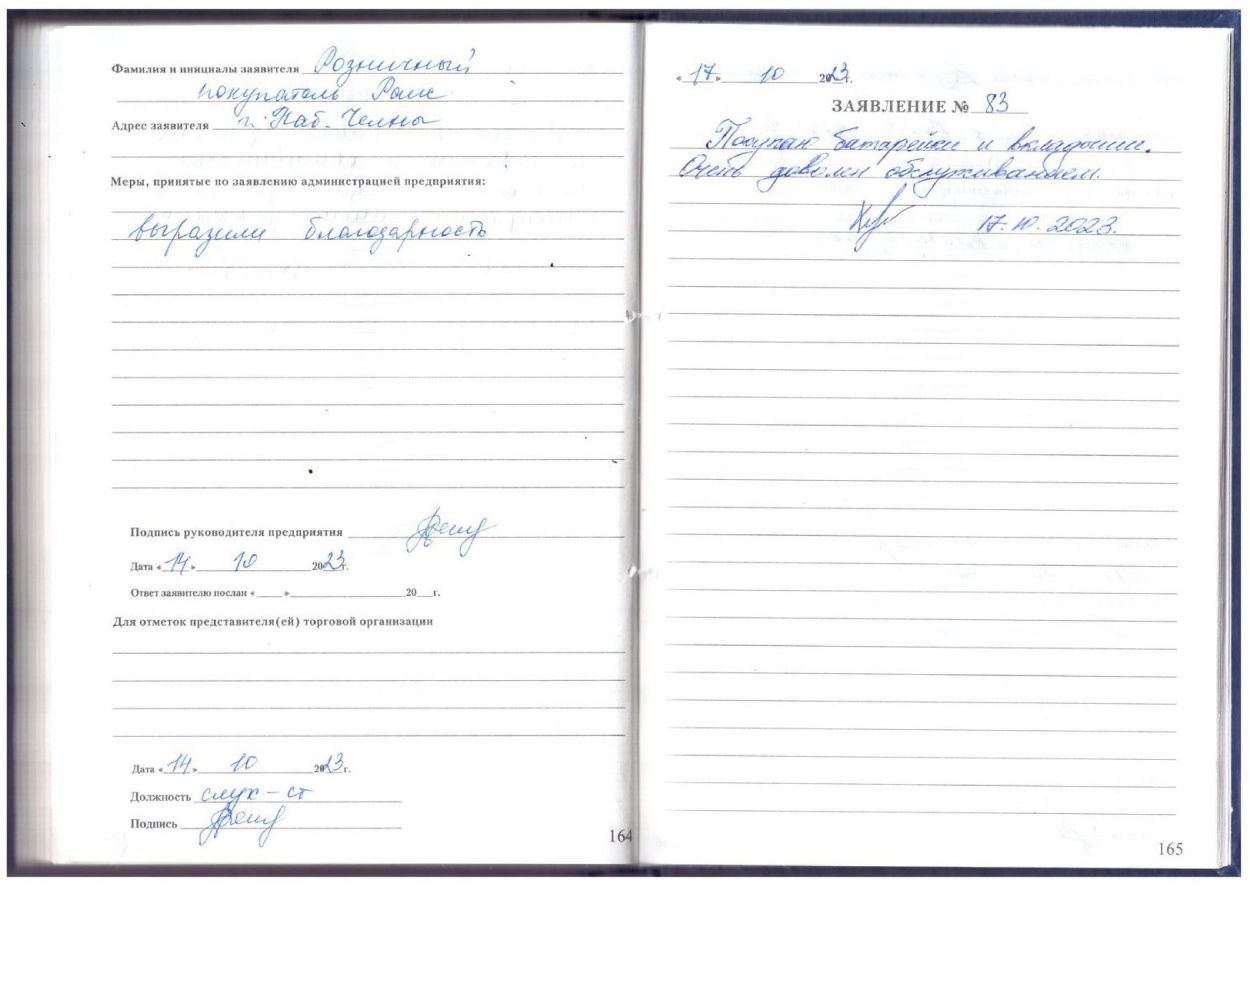 Фамилия и инициалы заявителя Розничный
покупатель Раис
Адрес заявителя г. Наб. Челны
Меры, принятые по заявлению администрацией предприятия:
выразили благодарность
Подпись руководителя предприятия
Дата «14» 10 2023г.
Ответ заявителю послан « » 20 г.
Для отметок представителя(ей) торговой организации
Дата «14» 10 2023 г.
Должность слух-ст
Подпись
164
«17» 10 2023г.
ЗАЯВЛЕНИЕ № 83
Покупаю батарейки и вкладыши.
Очень доволен обслуживанием.
17.10.2023.
165